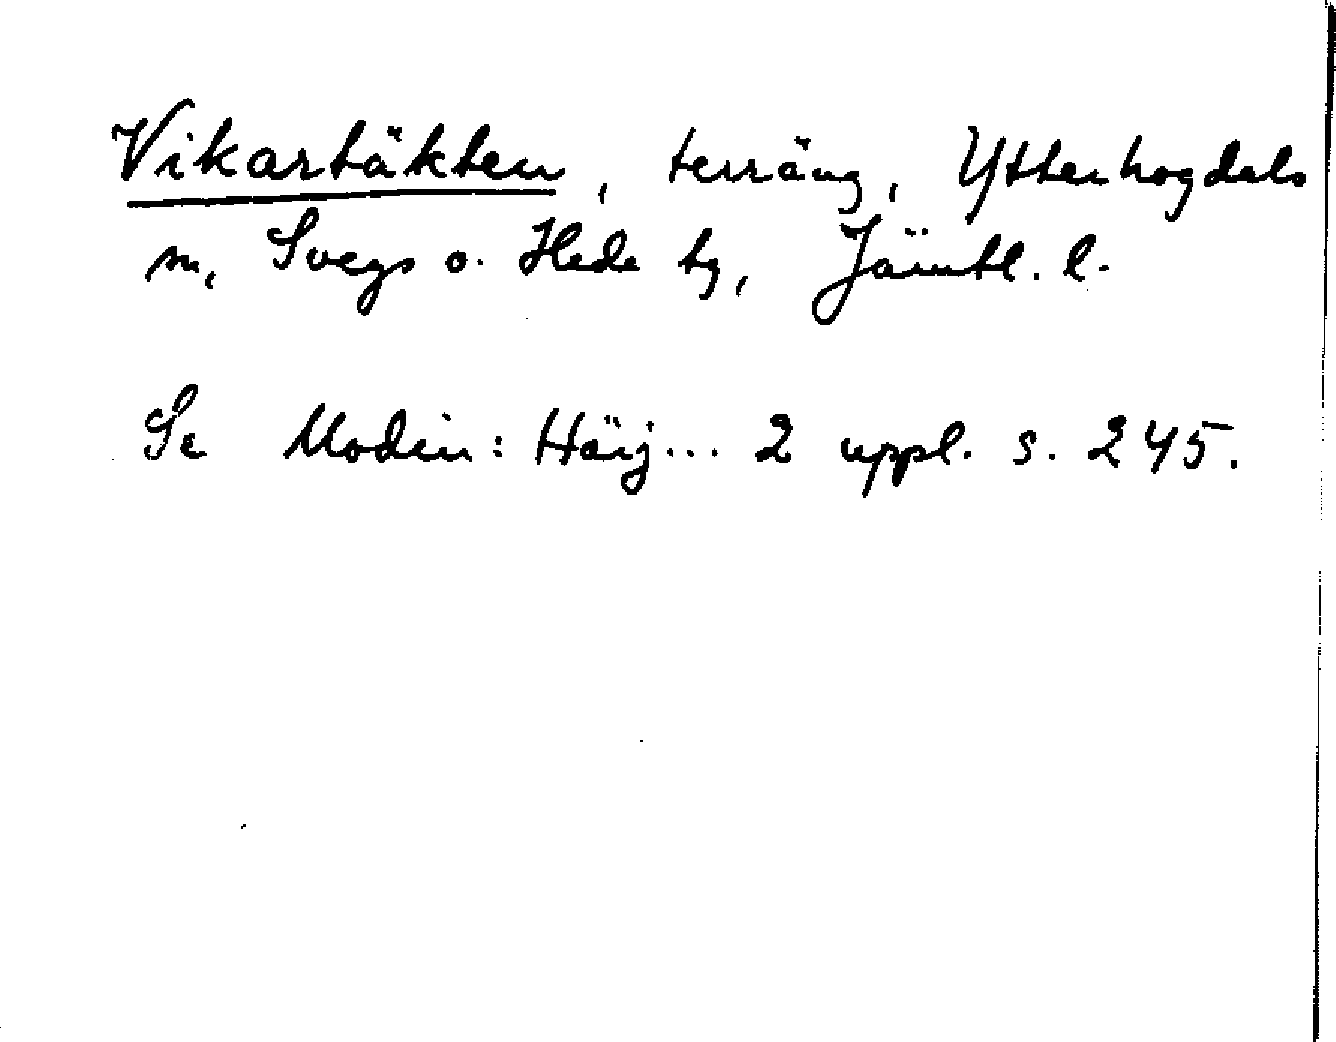 Vikartäkten, terräng, Ytterhogdals
sn, Svegs o. Hede tg, Jämtl. l.
Se Modin: Härj... 2 uppl. s. 245.